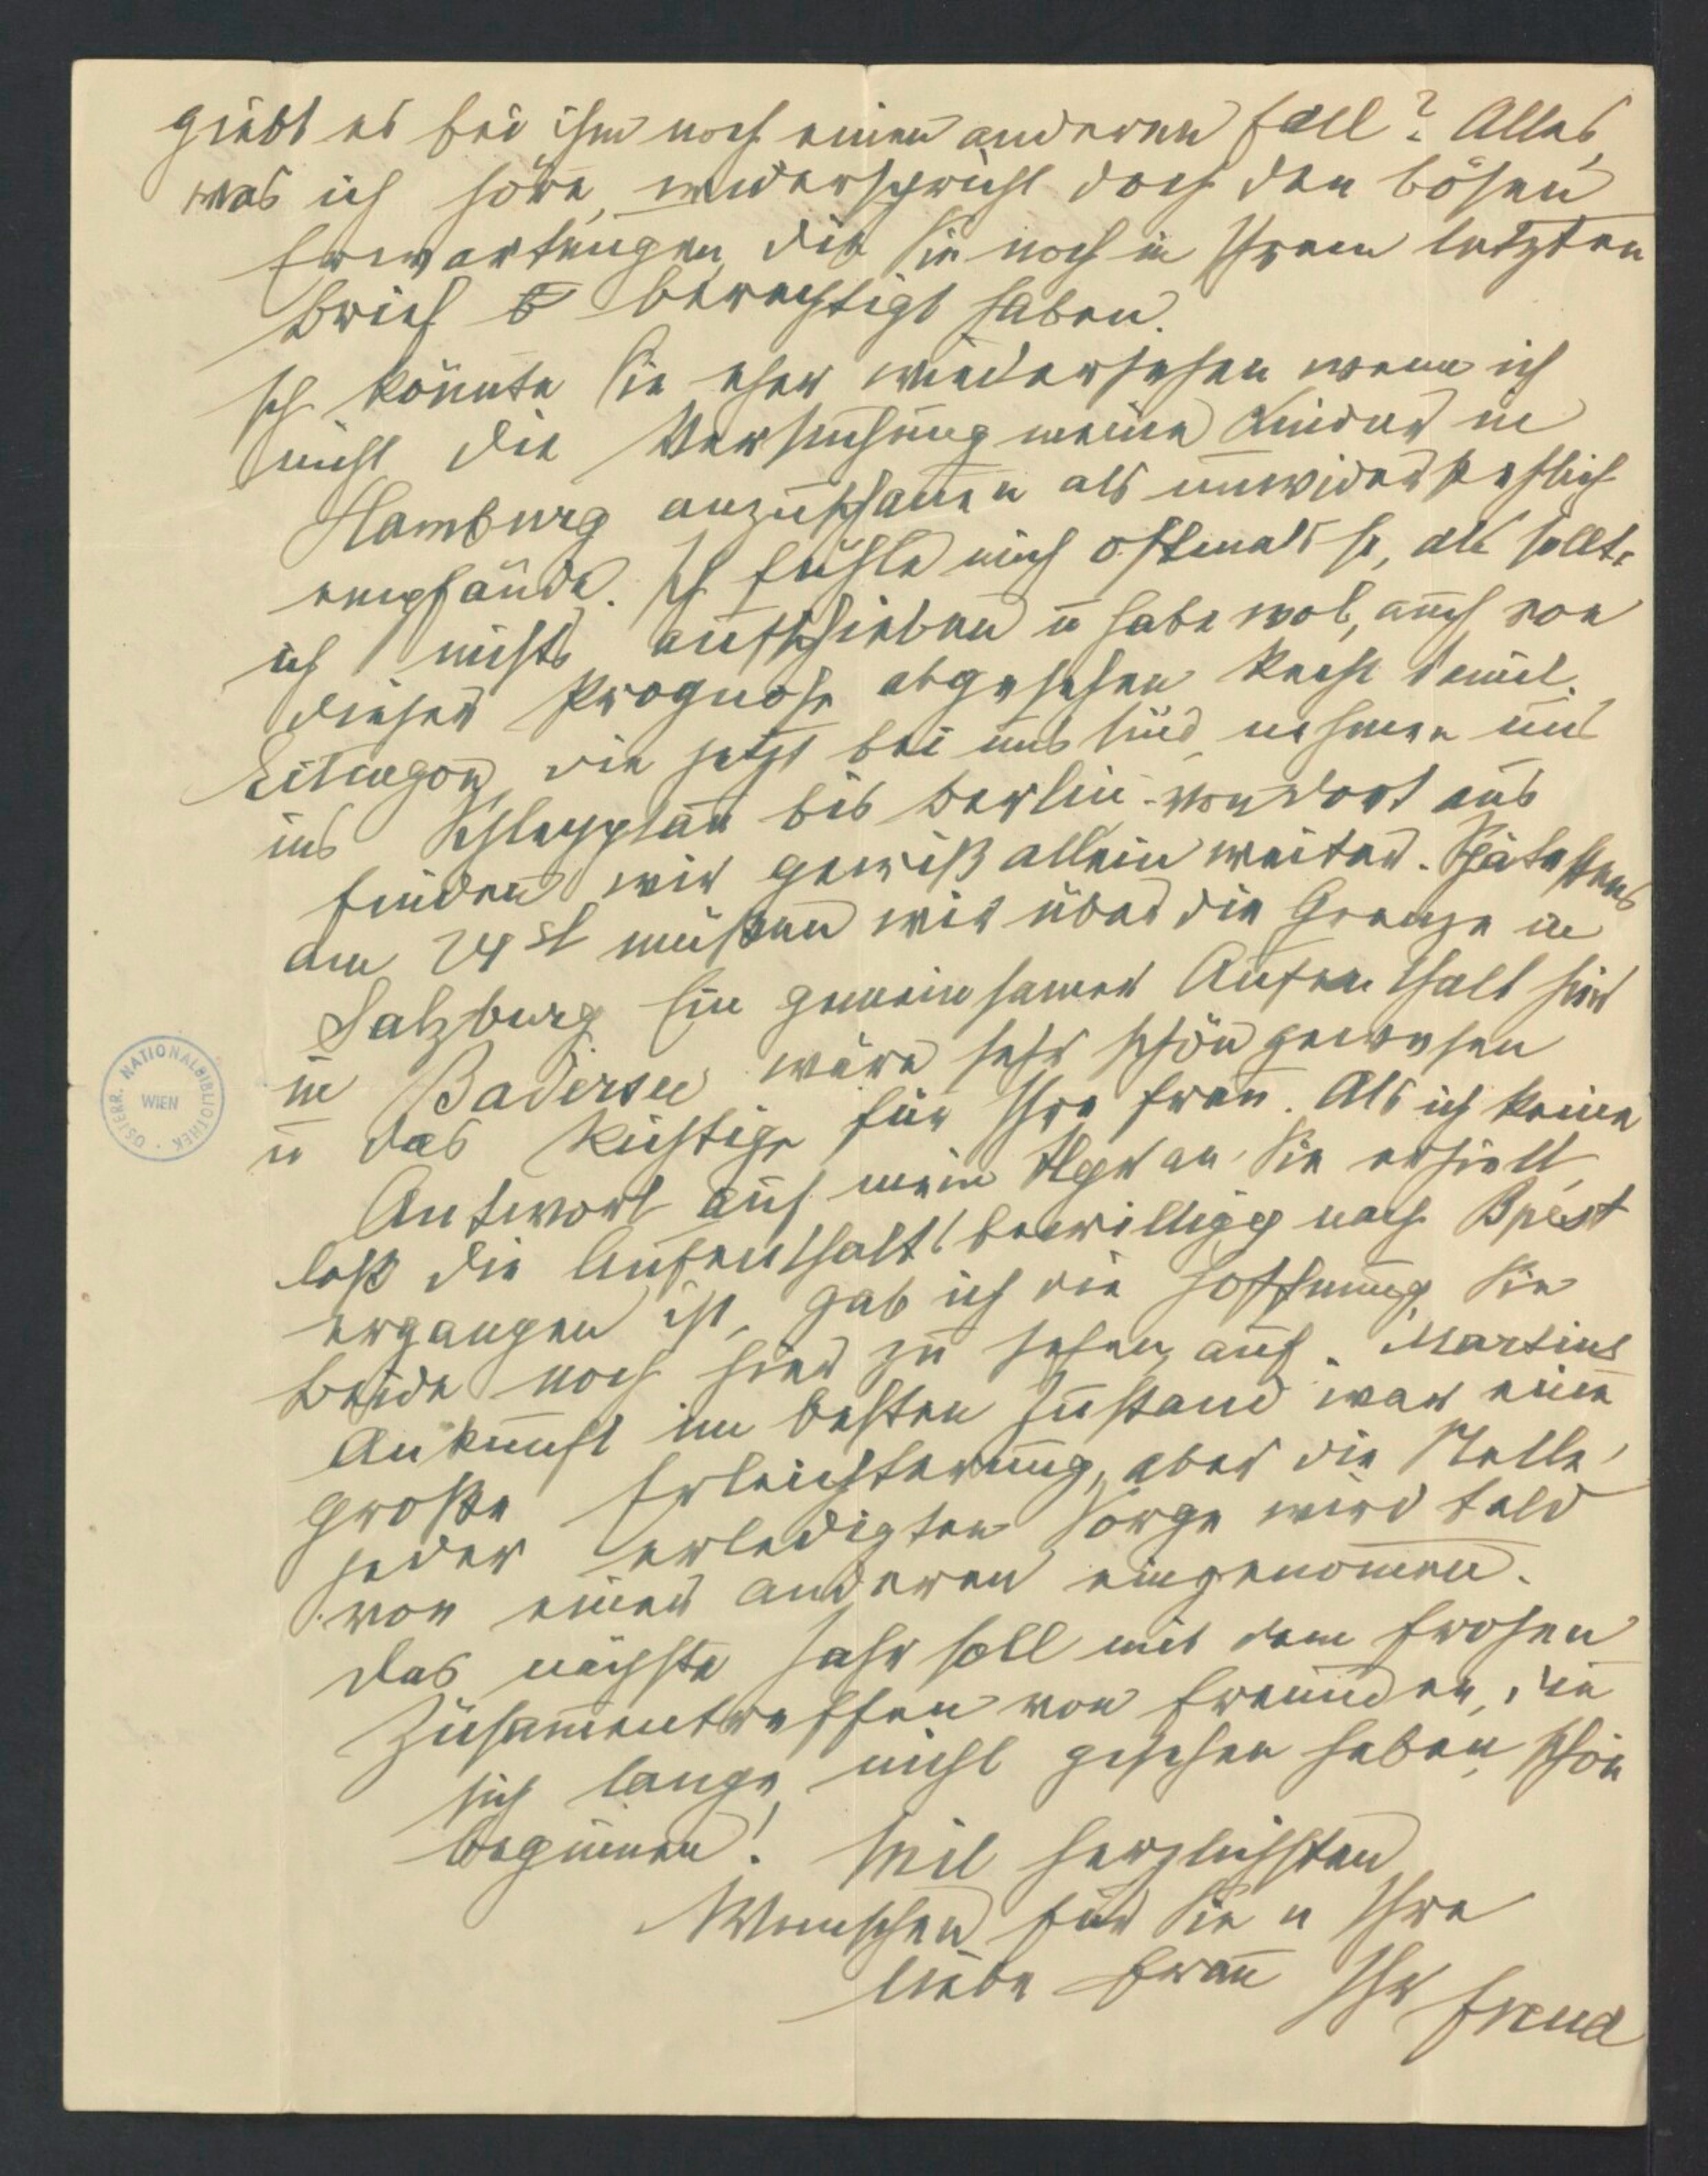 giebt es bei ihm noch einen anderen Fall? Alles,
was ich höre, widerspricht doch den bösen
Erwartungen, die Sie noch in Ihrem letzten
Brief berechtigt haben.
Ich könnte Sie eher wiedersehen wenn ich
nicht die Versuchung meine Kinder in
Hamburg anzuschauen als unwiderstehlich
empfände. Ich fühle mich oftmals so, als sollte
ich nichts aufschieben u habe wol, auch von
dieser Prognose abgesehen Recht damit.
Eitingon, die jetzt bei uns sind, nehmen uns
ins Schlepptau bis Berlin. von dort aus
finden wir gewiß allein weiter. Spätestens
am 24st müßen wir über die Grenze in
Salzburg. Ein gemeinsamer Aufenthalt hier
in Badersee wäre sehr schön gewesen
u das Richtige für Ihre Frau. Als ich keine
Antwort auf mein Tlgr an Sie erhielt,
daß die Aufenthaltsbewilligg nach Bpest
ergangen ist, gab ich die Hoffnung, Sie
beide noch hier zu sehen, auf. Martins
Ankunft im besten Zustand war eine
große Erleichterung, aber die Stelle
jeder erledigten Sorge wird bald
von einer anderen eingenommen.
Das nächste Jahr soll mit dem frohen
Zusammentreffen von Freunden, die
sich lange nicht gesehen haben, schön
beginnen! Mit herzlichsten
Wünschen für Sie u Ihre
liebe Frau Ihr Freud
ÖSTERR. NATIONALBIBLIOTHEK
WIEN